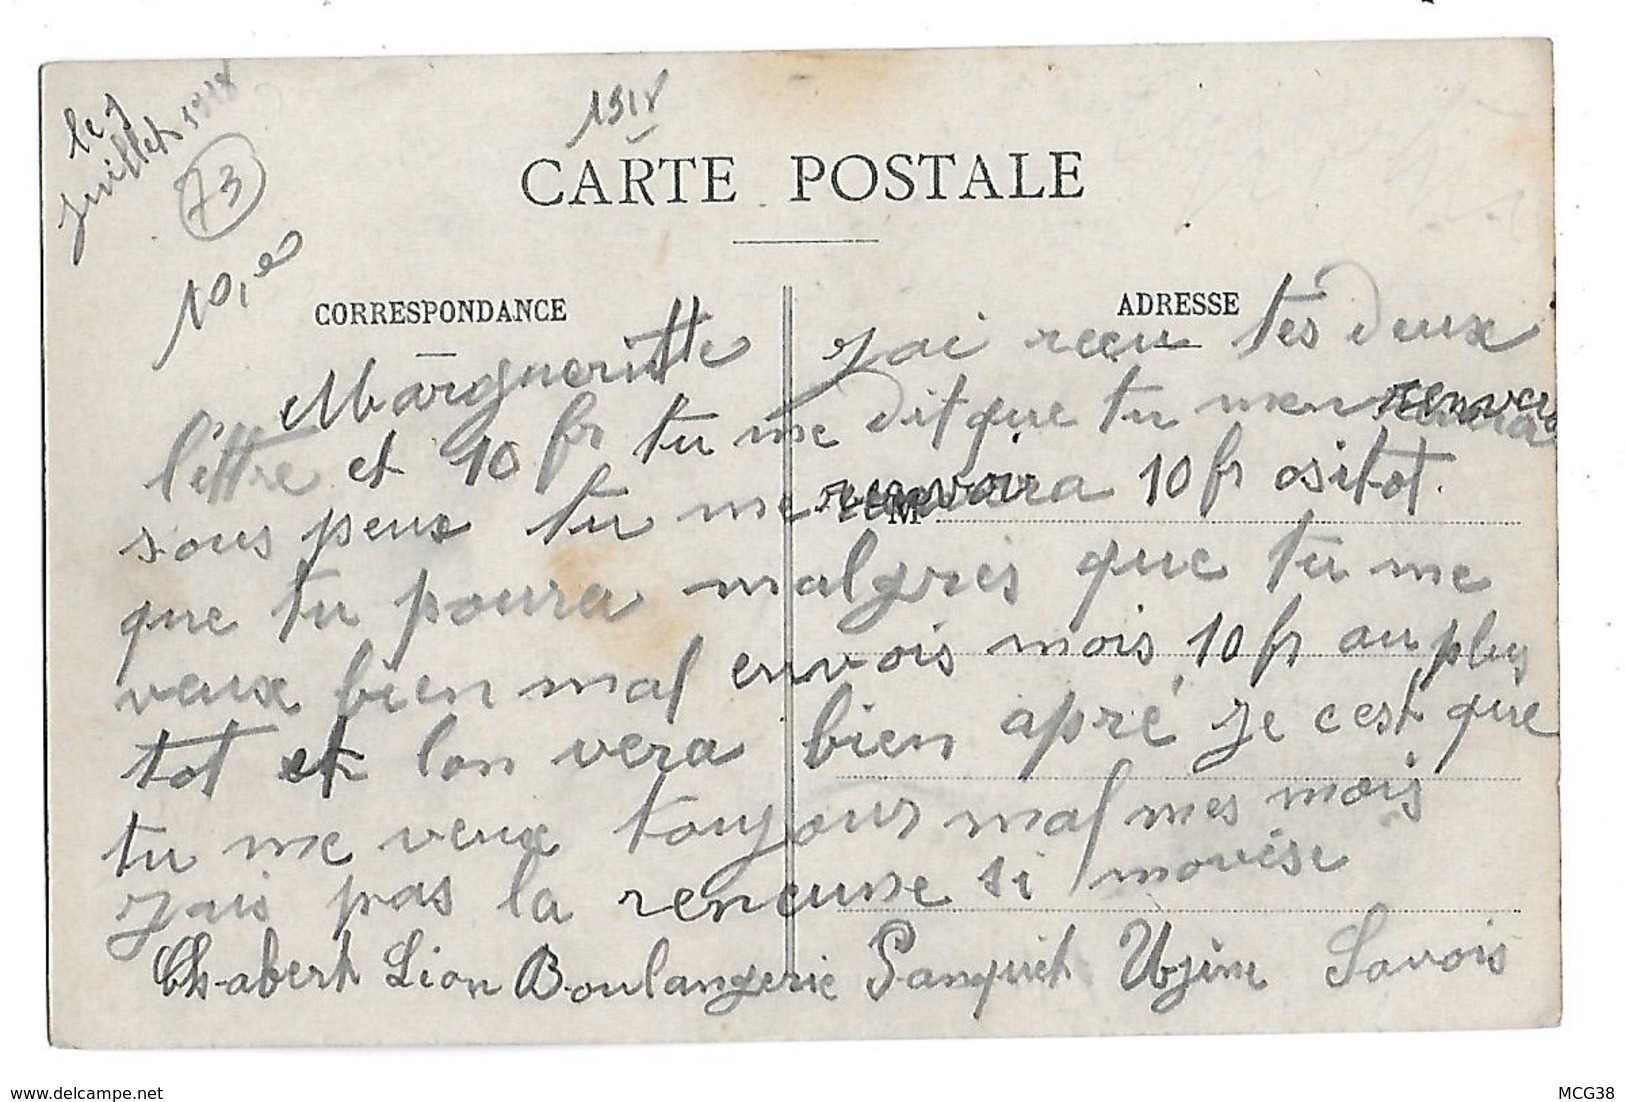 le 9
juillet 1918
73
10,e
1918
CARTE POSTALE
CORRESPONDANCE
ADRESSE
Margueritte jai recu tes deux
lettre et 10 fr tu me dit que tu men renvera
sous peux tu me renvoira 10 fr ositot
M
que tu poura malgres que tu me
veux bien mal envois mois 10 fr au plus
tot et lon vera bien apré je c est que
tu me veux toujour mal mes mois
jais pas la rencune si movèse
Chabert Lion Boulangerie Panquet Ujine Savois
www.delcampe.net
MCG38